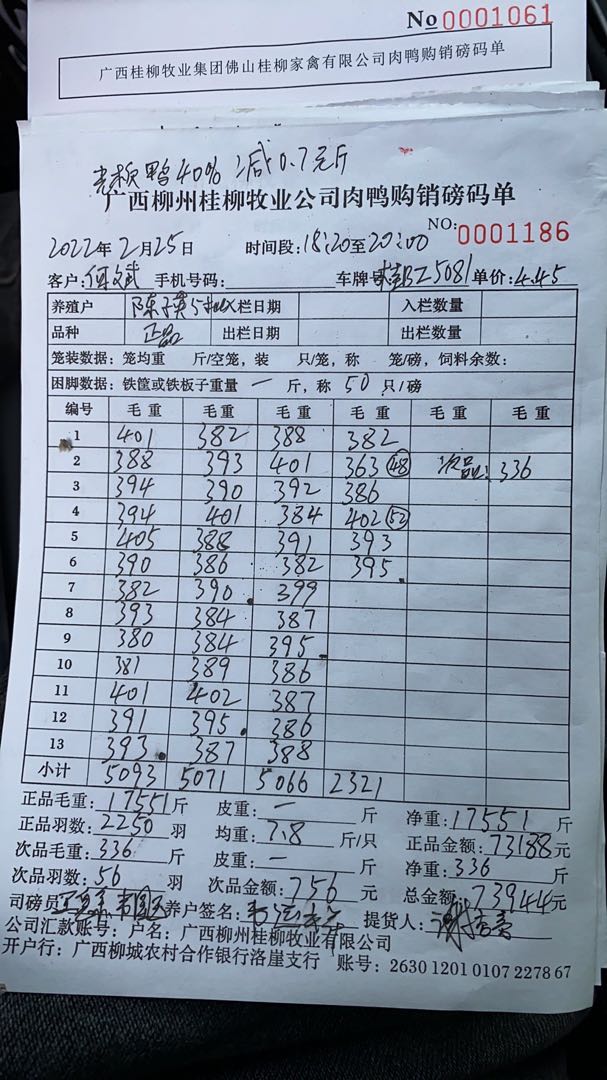 No 0001061
广西桂柳牧业集团佛山桂柳家禽有限公司肉鸭购销磅码单
老板鸭40% 减0.7元斤
广西柳州桂柳牧业公司肉鸭购销磅码单
NO: 0001186
2022年2月25日 时间段:18:20至20:00
客户:何文斌 手机号码: 车牌号 5081 单价:4.45
养殖户 入栏日期 入栏数量
品种 正品 出栏日期 出栏数量
笼装数据: 笼均重 斤/空笼, 装 只/笼, 称 笼/磅, 饲料余数:
困脚数据: 铁筐或铁板子重量 一 斤, 称 50 只/磅
编号 毛重 毛重 毛重 毛重 毛重 毛重
1 401 382 388 382
2 388 393 401 363 48 次品: 336
3 394 390 392 386
4 394 401 384 402 52
5 405 388 391 393
6 390 386 382 395
7 382 390 399
8 393 384 387
9 380 384 395
10 381 389 386
11 401 402 387
12 391 395 386
13 393 387 388
小计 5093 5071 5066 2321
正品毛重: 17551 斤 皮重: 一 斤 净重: 17551 斤
正品羽数: 2250 羽 均重: 7.8 斤/只 正品金额: 73188 元
次品毛重: 336 斤 皮重: 一 斤 净重: 336 斤
次品羽数: 56 羽 次品金额: 756 元 总金额: 73944 元
司磅员 养户签名: 提货人:
公司汇款账号: 户名: 广西柳州桂柳牧业有限公司
开户行: 广西柳城农村合作银行洛崖支行 账号: 2630 1201 0107 2278 67